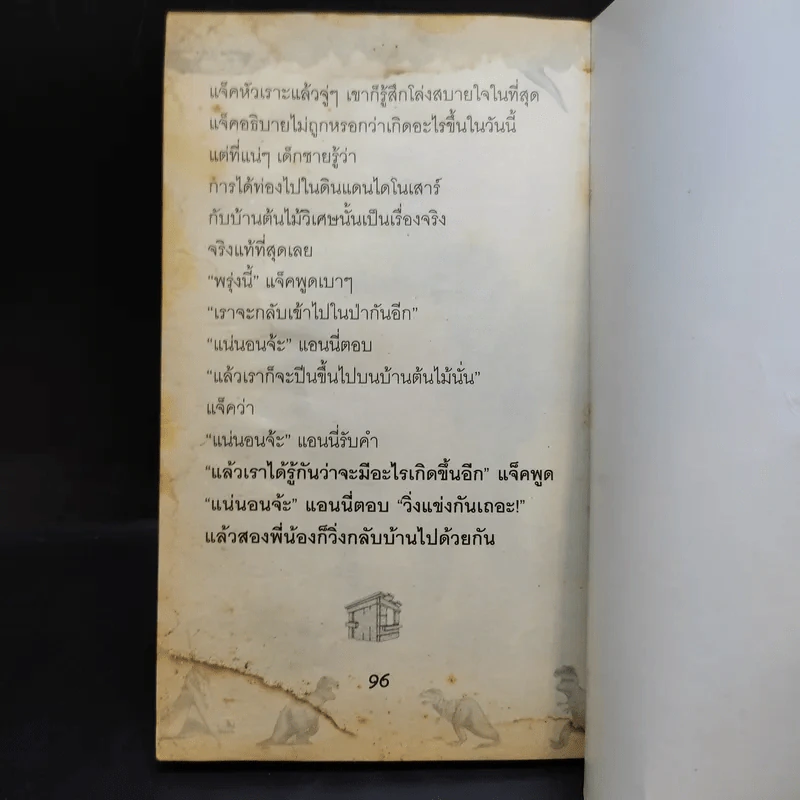 แจ็คหัวเราะแล้วจู่ๆ เขาก็รู้สึกโล่งสบายใจในที่สุด
แจ็คอธิบายไม่ถูกหรอกว่าเกิดอะไรขึ้นในวันนี้
แต่ที่แน่ๆ เด็กชายรู้ว่า
การได้ท่องไปในดินแดนไดโนเสาร์
กับบ้านต้นไม้วิเศษนั้นเป็นเรื่องจริง
จริงแท้ที่สุดเลย
“พรุ่งนี้” แจ็คพูดเบาๆ
“เราจะกลับเข้าไปในป่ากันอีก”
“แน่นอนจ้ะ” แอนนี่ตอบ
“แล้วเราก็จะปีนขึ้นไปบนบ้านต้นไม้นั่น”
แจ็คว่า
“แน่นอนจ้ะ” แอนนี่รับคำ
“แล้วเราได้รู้กันว่าจะมีอะไรเกิดขึ้นอีก” แจ็คพูด
“แน่นอนจ้ะ” แอนนี่ตอบ “วิ่งแข่งกันเถอะ!”
แล้วสองพี่น้องก็วิ่งกลับบ้านไปด้วยกัน
96